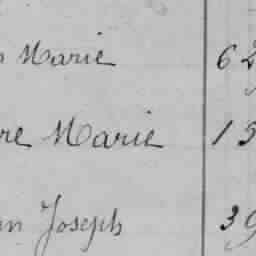 Marie 62
re Marie 15
n Joseph 39